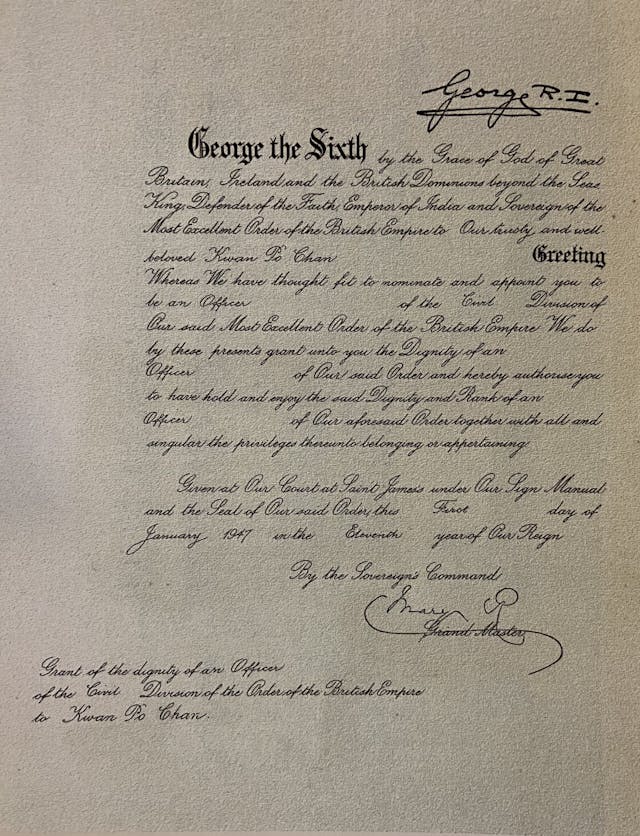 George R.I.
George the Sixth by the Grace of God of Great
Britain, Ireland and the British Dominions beyond the Seas
King, Defender of the Faith, Emperor of India and Sovereign of the
Most Excellent Order of the British Empire to Our trusty and well-
beloved Kwan Po Chan Greeting
Whereas We have thought fit to nominate and appoint you to
be an Officer of the Civil Division of
Our said Most Excellent Order of the British Empire We do
by these presents grant unto you the Dignity of an
Officer of Our said Order and hereby authorise you
to have hold and enjoy the said Dignity and Rank of an
Officer of Our aforesaid Order together with all and
singular the privileges thereunto belonging or appertaining.
Given at Our Court at Saint James's under Our Sign Manual
and the Seal of Our said Order, this First day of
January 1947 in the Eleventh year of Our Reign
By the Sovereign's Command
Mary R
Grand Master
Grant of the dignity of an Officer
of the Civil Division of the Order of the British Empire
to Kwan Po Chan.